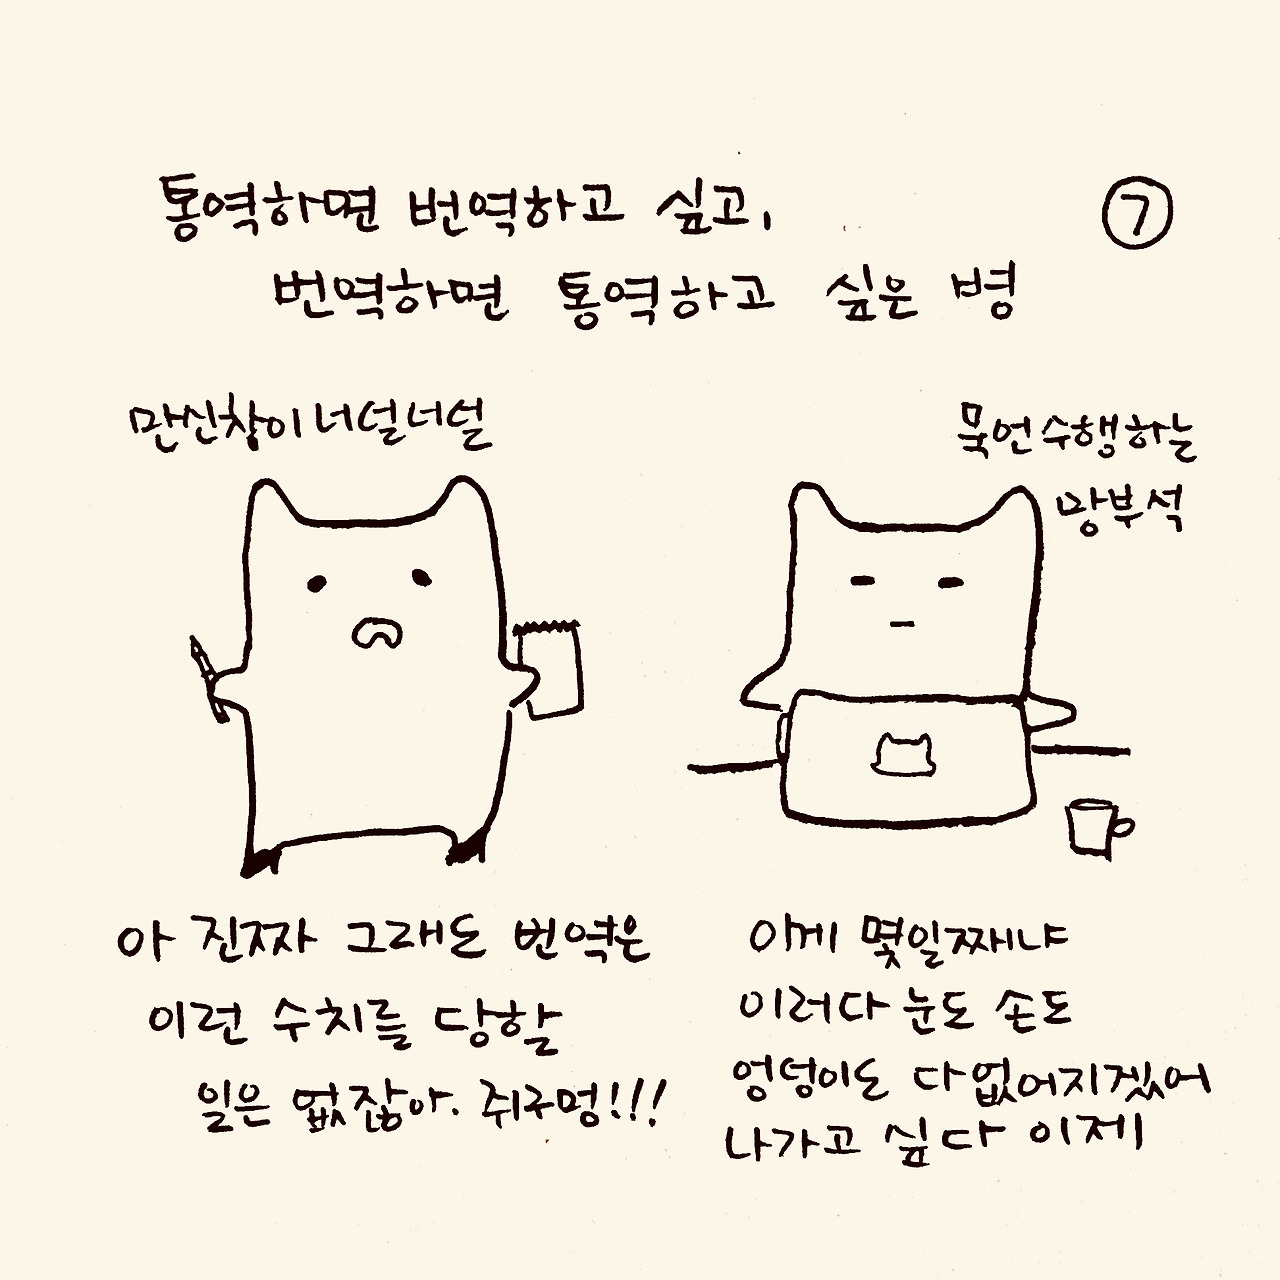 통역하면 번역하고 싶고,
⑦
번역하면 통역하고 싶은 병
만신창이 너덜너덜
묵언수행하는
망부석
아 진짜 그래도 번역은
이런 수치를 당할
일은 없잖아. 쥐구멍!!!
이게 몇일째냐
이러다 눈도 손도
엉덩이도 다 없어지겠어
나가고 싶다 이제